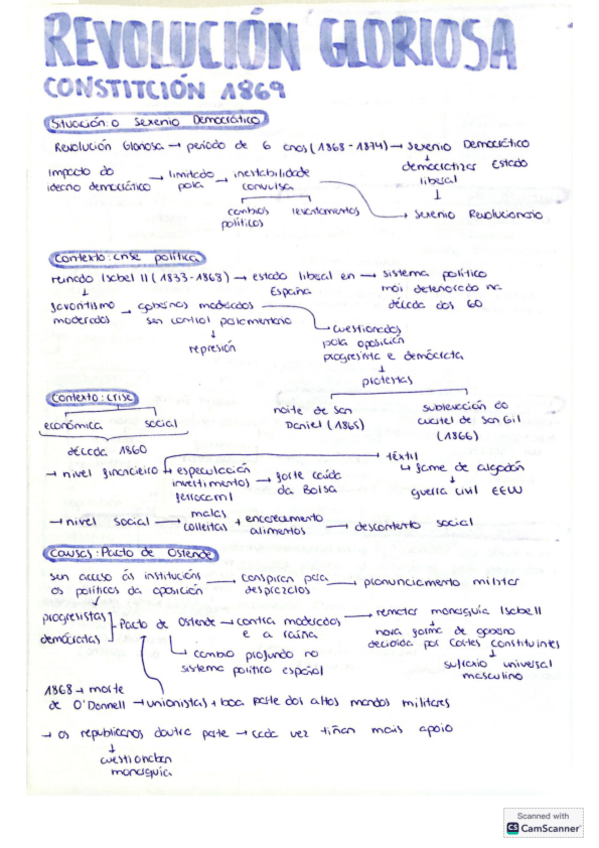 REVOLUCIÓN GLORIOSA
CONSTITCIÓN 1869
Situación: o Sexenio Democrático
Revolución Gloriosa → período de 6 anos (1868 - 1874) → Sexenio Democrático
↓
democratizar Estado liberal
↓
Sexenio Revolucionario
Impacto do ideario democrático → limitado pola → inestabilidade convulsa
cambios políticos
levantamentos
Contexto: crise política
reinado Isabel II (1833 - 1868) → estado liberal en España → sistema político moi deteriorado na década dos 60
↓
favoritismo moderados → gobernos moderados sen control parlamentario
↓
represión
cuestionados pola oposición progresista e demócrata
↓
protestas
noite de San Daniel (1865)
sublevación do cuartel de San Gil (1866)
Contexto: crise
económica
social
década 1860
→ nivel financieiro → especulación investimentos ferrocarril → forte caída da Bolsa
téxtil
↳ fame de algodón
↓
guerra civil EEUU
→ nivel social → malas colleitas + encarecemento alimentos → descontento social
Causas: Pacto de Ostende
sen acceso ás institucións os políticos da oposición → conspiran para desprazalos → pronunciamento militar
progresistas
demócratas
Pacto de Ostende → contra moderados e a raíña → rematar monarquía Isabel II
nova forma de goberno decidida por Cortes constituintes
↓
sufraxio universal masculino
↳ cambio profundo no sistema político español
1868 → morte de O'Donnell → unionistas + boa parte dos altos mandos militares
→ os republicanos doutra parte → cada vez tiñan máis apoio
↓
cuestionaban monarquía
Scanned with
CS CamScanner